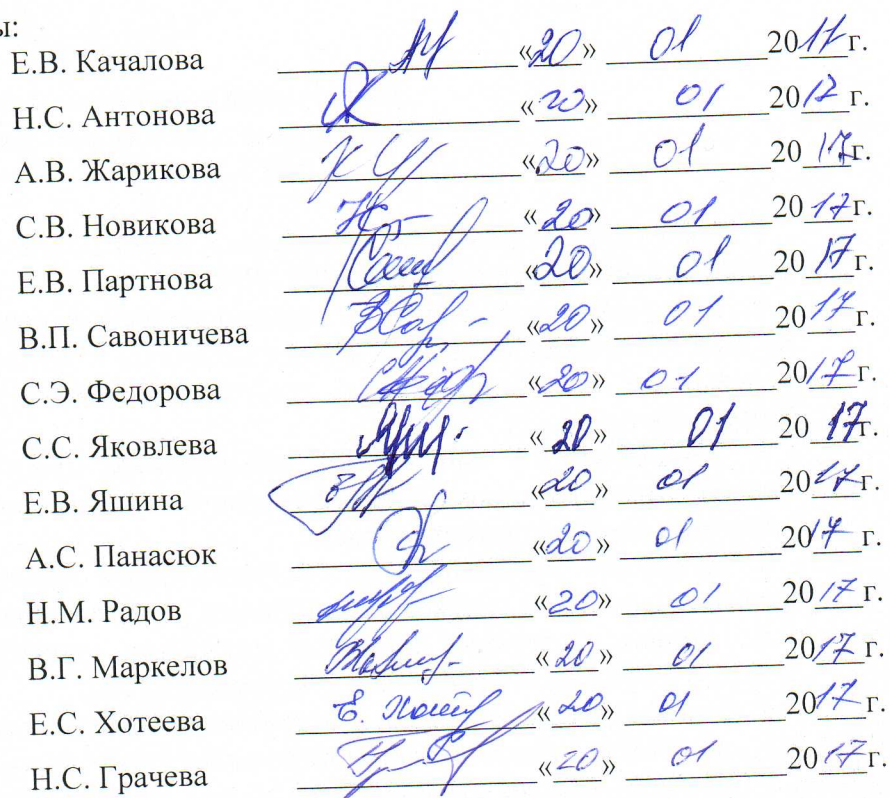 ы:
Е.В. Качалова «20» 01 2017 г.
Н.С. Антонова «20» 01 2017 г.
А.В. Жарикова «20» 01 2017 г.
С.В. Новикова «20» 01 2017 г.
Е.В. Партнова «20» 01 2017 г.
В.П. Савоничева «20» 01 2017 г.
С.Э. Федорова «20» 01 2017 г.
С.С. Яковлева «20» 01 2017 г.
Е.В. Яшина «20» 01 2017 г.
А.С. Панасюк «20» 01 2017 г.
Н.М. Радов «20» 01 2017 г.
В.Г. Маркелов «20» 01 2017 г.
Е.С. Хотеева «20» 01 2017 г.
Н.С. Грачева «20» 01 2017 г.